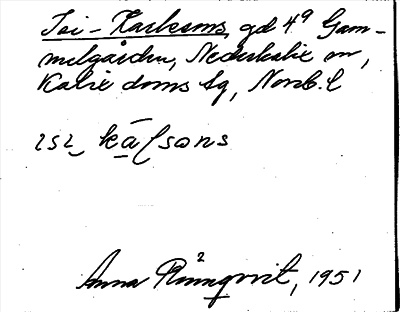 Isi-Karlsons, gd 4⁹ Gam-
melgården, Nederkalix sn,
Kalix doms. tg, Norrb. l
ɪsɪ kɑ̄ʃsɔns
Anna Rönnqvist, 1951